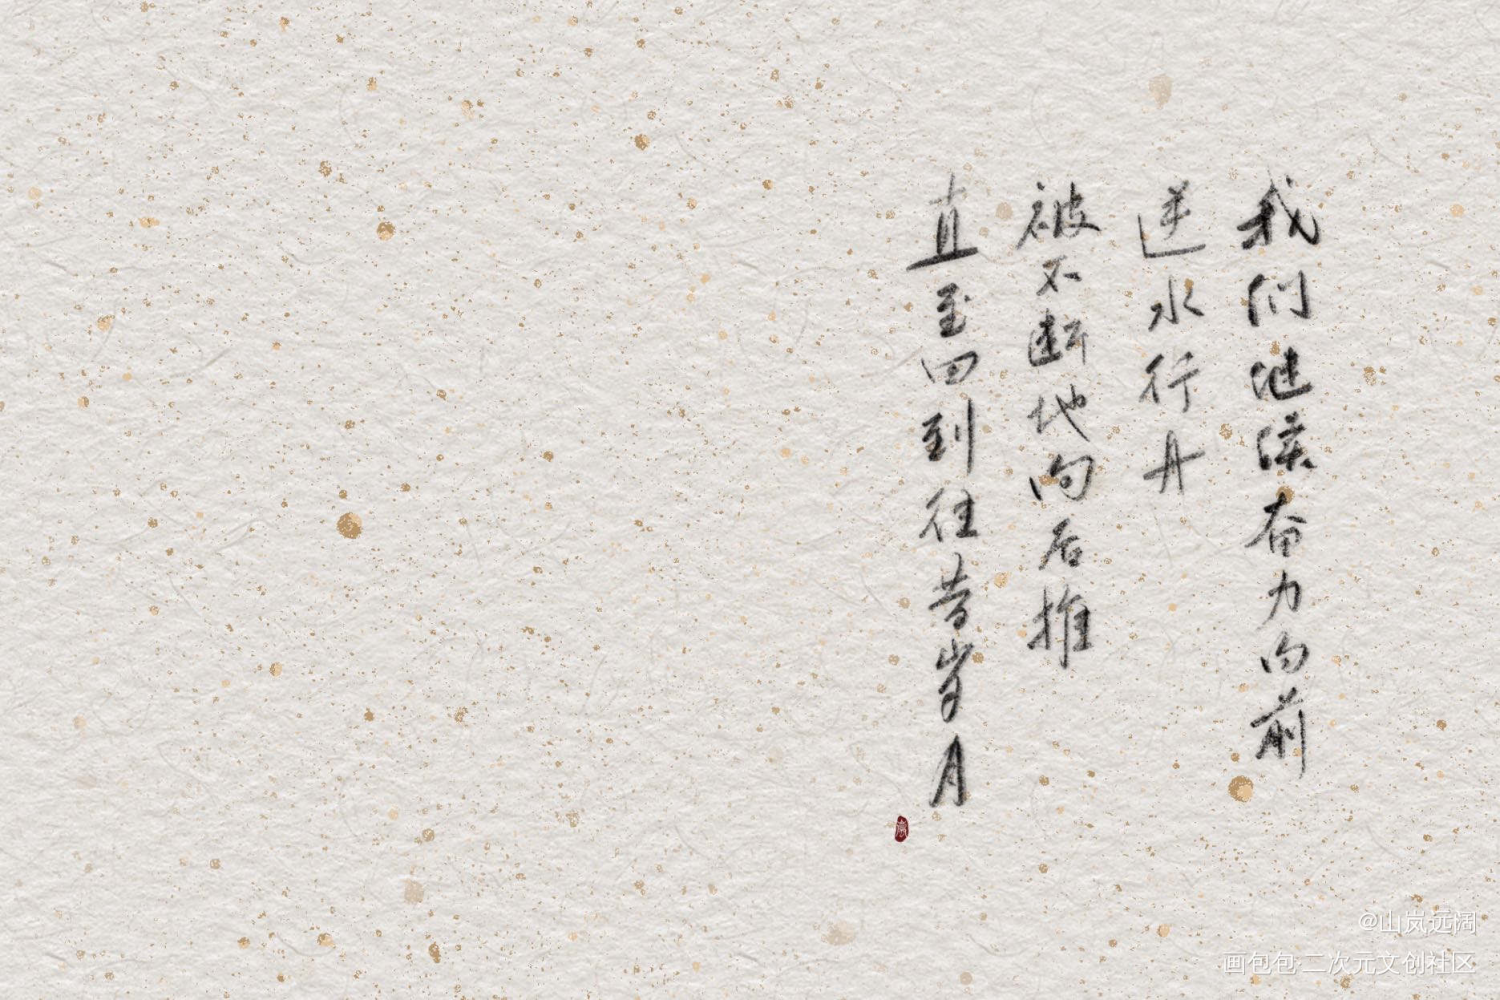 我们继续奋力向前
逆水行舟
被不断地向后推
直至回到往昔岁月
@山岚远阔
画包包·二次元文创社区